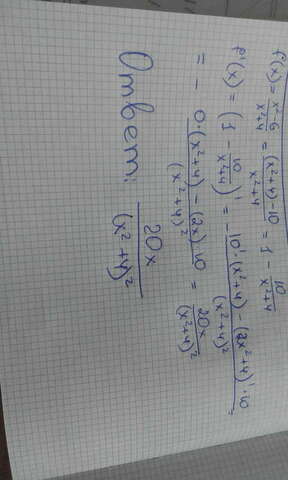 f'(x) = x²-6 / x²+4 = (x²+4)-10 / x²+4 = 1 - 10 / x²+4
f'(x) = (1 - 10 / x²+4)' = - 10'·(x²+4) - (2x²+4)'·10 / (x²+4)² =
= - 0·(x²+4) - (2x)·10 / (x²+4)² = 20x / (x²+4)²
Ombem: 20x / (x²+4)²